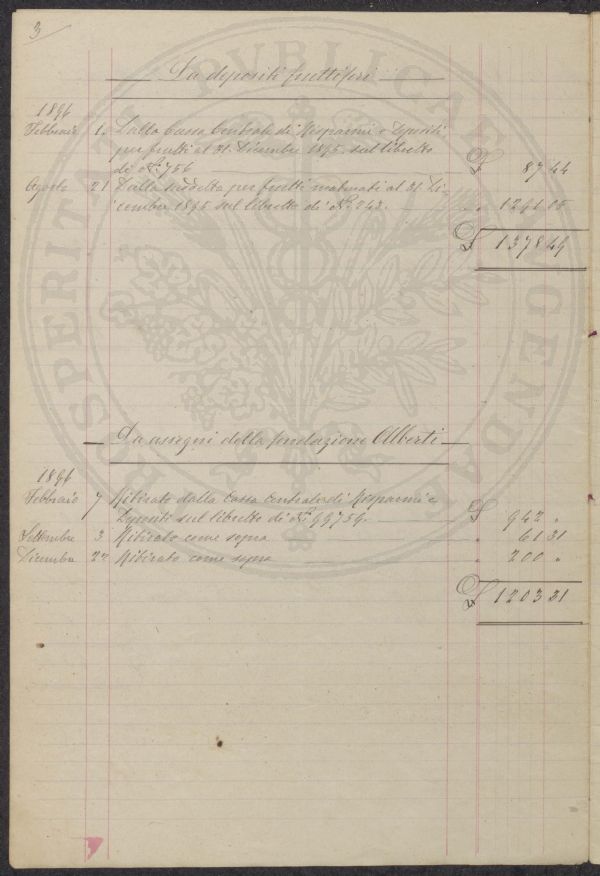 3
Da depositi fruttiferi
1896
Febbraio 1. Dalla Cassa Centrale di Risparmi e Depositi
per frutti al 31. Dicembre 1895. sul libretto
di N.° 756 £ 87 44
Agosto 21 Dalla suddetta per frutti maturati al 31. Di-
cembre 1895 sul libretto di N.° 242. " 1291 05
£ 1378 49
Da assegni della fondazione Alberti
1896
Febbraio 7 Ritirato dalla Cassa Centrale di Risparmi e
Depositi sul libretto di N.° 99759. £ 942 "
Settembre 3 Ritirato come sopra " 61 31
Dicembre 22 Ritirato come sopra " 200 "
£ 1203 31
PROSPERITATI PVBLICAE AVGENDAE